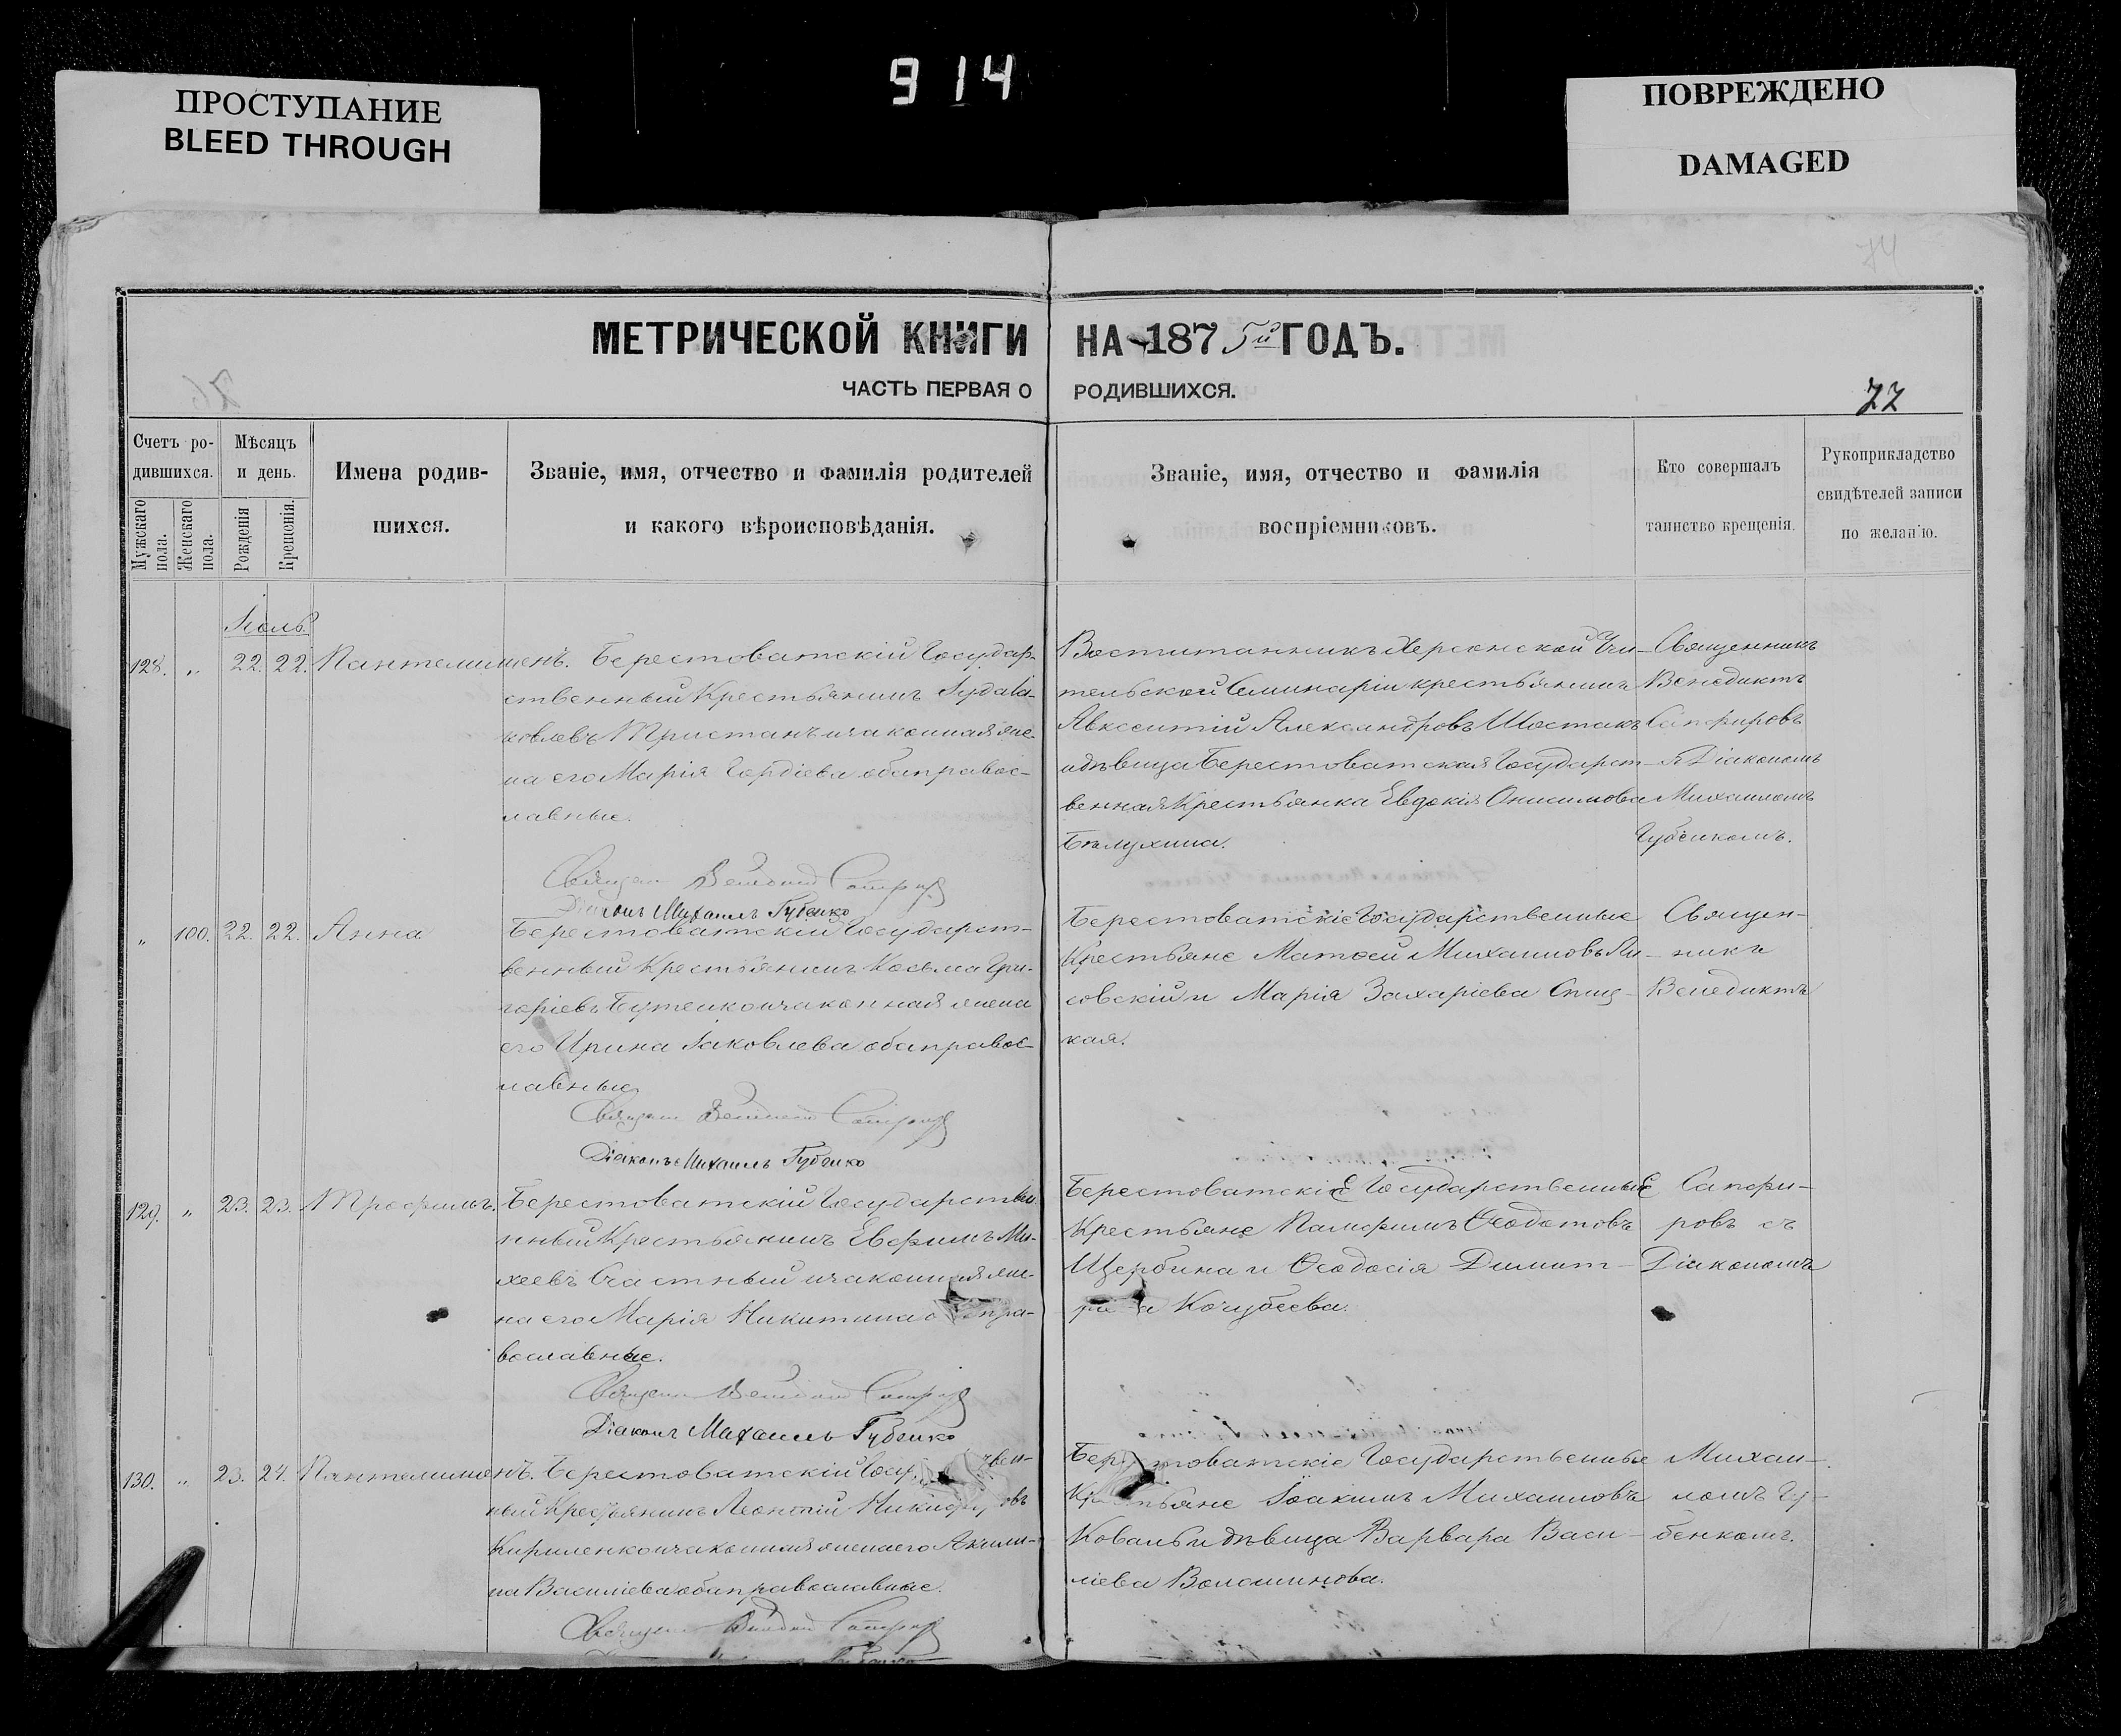 914
ПРОСТУПАНИЕ
BLEED THROUGH
ПОВРЕЖДЕНО
DAMAGED
74
МЕТРИЧЕСКОЙ КНИГИ НА 1875й ГОДЪ.
ЧАСТЬ ПЕРВАЯ О РОДИВШИХСЯ.
77
Счетъ ро-
дившихся.
Мужскаго пола.
Женскаго пола.
Мѣсяцъ
и день.
Рожденія
Крещенія.
Имена родив-
шихся.
Званіе, имя, отчество и фамилія родителей
и какого вѣроисповѣданія.
Званіе, имя, отчество и фамилія
воспріемниковъ.
Кто совершалъ
таинство крещенія.
Рукоприкладство
свидѣтелей записи
по желанію.
Іюль
128. „ 22. 22. Пантелимонъ.
Берестоватскій Государ-
ственный Крестьянинъ Іуда Іа-
ковлевъ Тристанъ и законная же-
на его Марія Гордіева оба правос-
лавные.
Діаконъ Михаилъ Губенко
Воспитанникъ Херсонской Учи-
тельской Семинаріи крестьянинъ
Авксентій Александровъ Шостакъ
и дѣвица Берестоватская Государст-
венная Крестьянка Евдокія Онисимова
Бѣлухина.
Священникъ
Венедиктъ
Сапфировъ
Діакономъ
Михаиломъ
Губенкомъ.
„ 100. 22. 22. Анна
Берестоватскій Государст-
венный Крестьянинъ Косьма Гри-
горіевъ Бутенко и законная жена
его Ирина Іаковлева оба правос-
лавные
Діаконъ Михаилъ Губенко
Берестоватскіе Государственные
Крестьяне Матѳей Михаиловъ Ли-
совскій и Марія Захаріева Спиц-
кая.
Священ-
никъ
Венедиктъ
129. „ 23. 23. Трофимъ.
Берестоватскій Государствен-
нный Крестьянинъ Евфимъ Ми-
хеевъ Счастный и законная же-
на его Марія Никитина пра-
вославные.
Діаконъ Михаилъ Губенко
Берестоватскіе Государственные
Крестьяне Памфилъ Ѳеодотовъ
Щербина и Ѳеодосія Димит-
Кочубеева.
Сапфи-
ровъ съ
Діакономъ
130. „ 23. 24. Пантелимонъ.
Берестоватскій Госу
ный Крестьянинъ Леонтій
Кириленко и законная жена его Акили-
на Василіева оба православные.
Государственные
Іоакимъ Михаиловъ
Коваль и дѣвица Варвара Васи-
ліева Волошинова.
Михаи-
ломъ Гу-
бенкомъ.